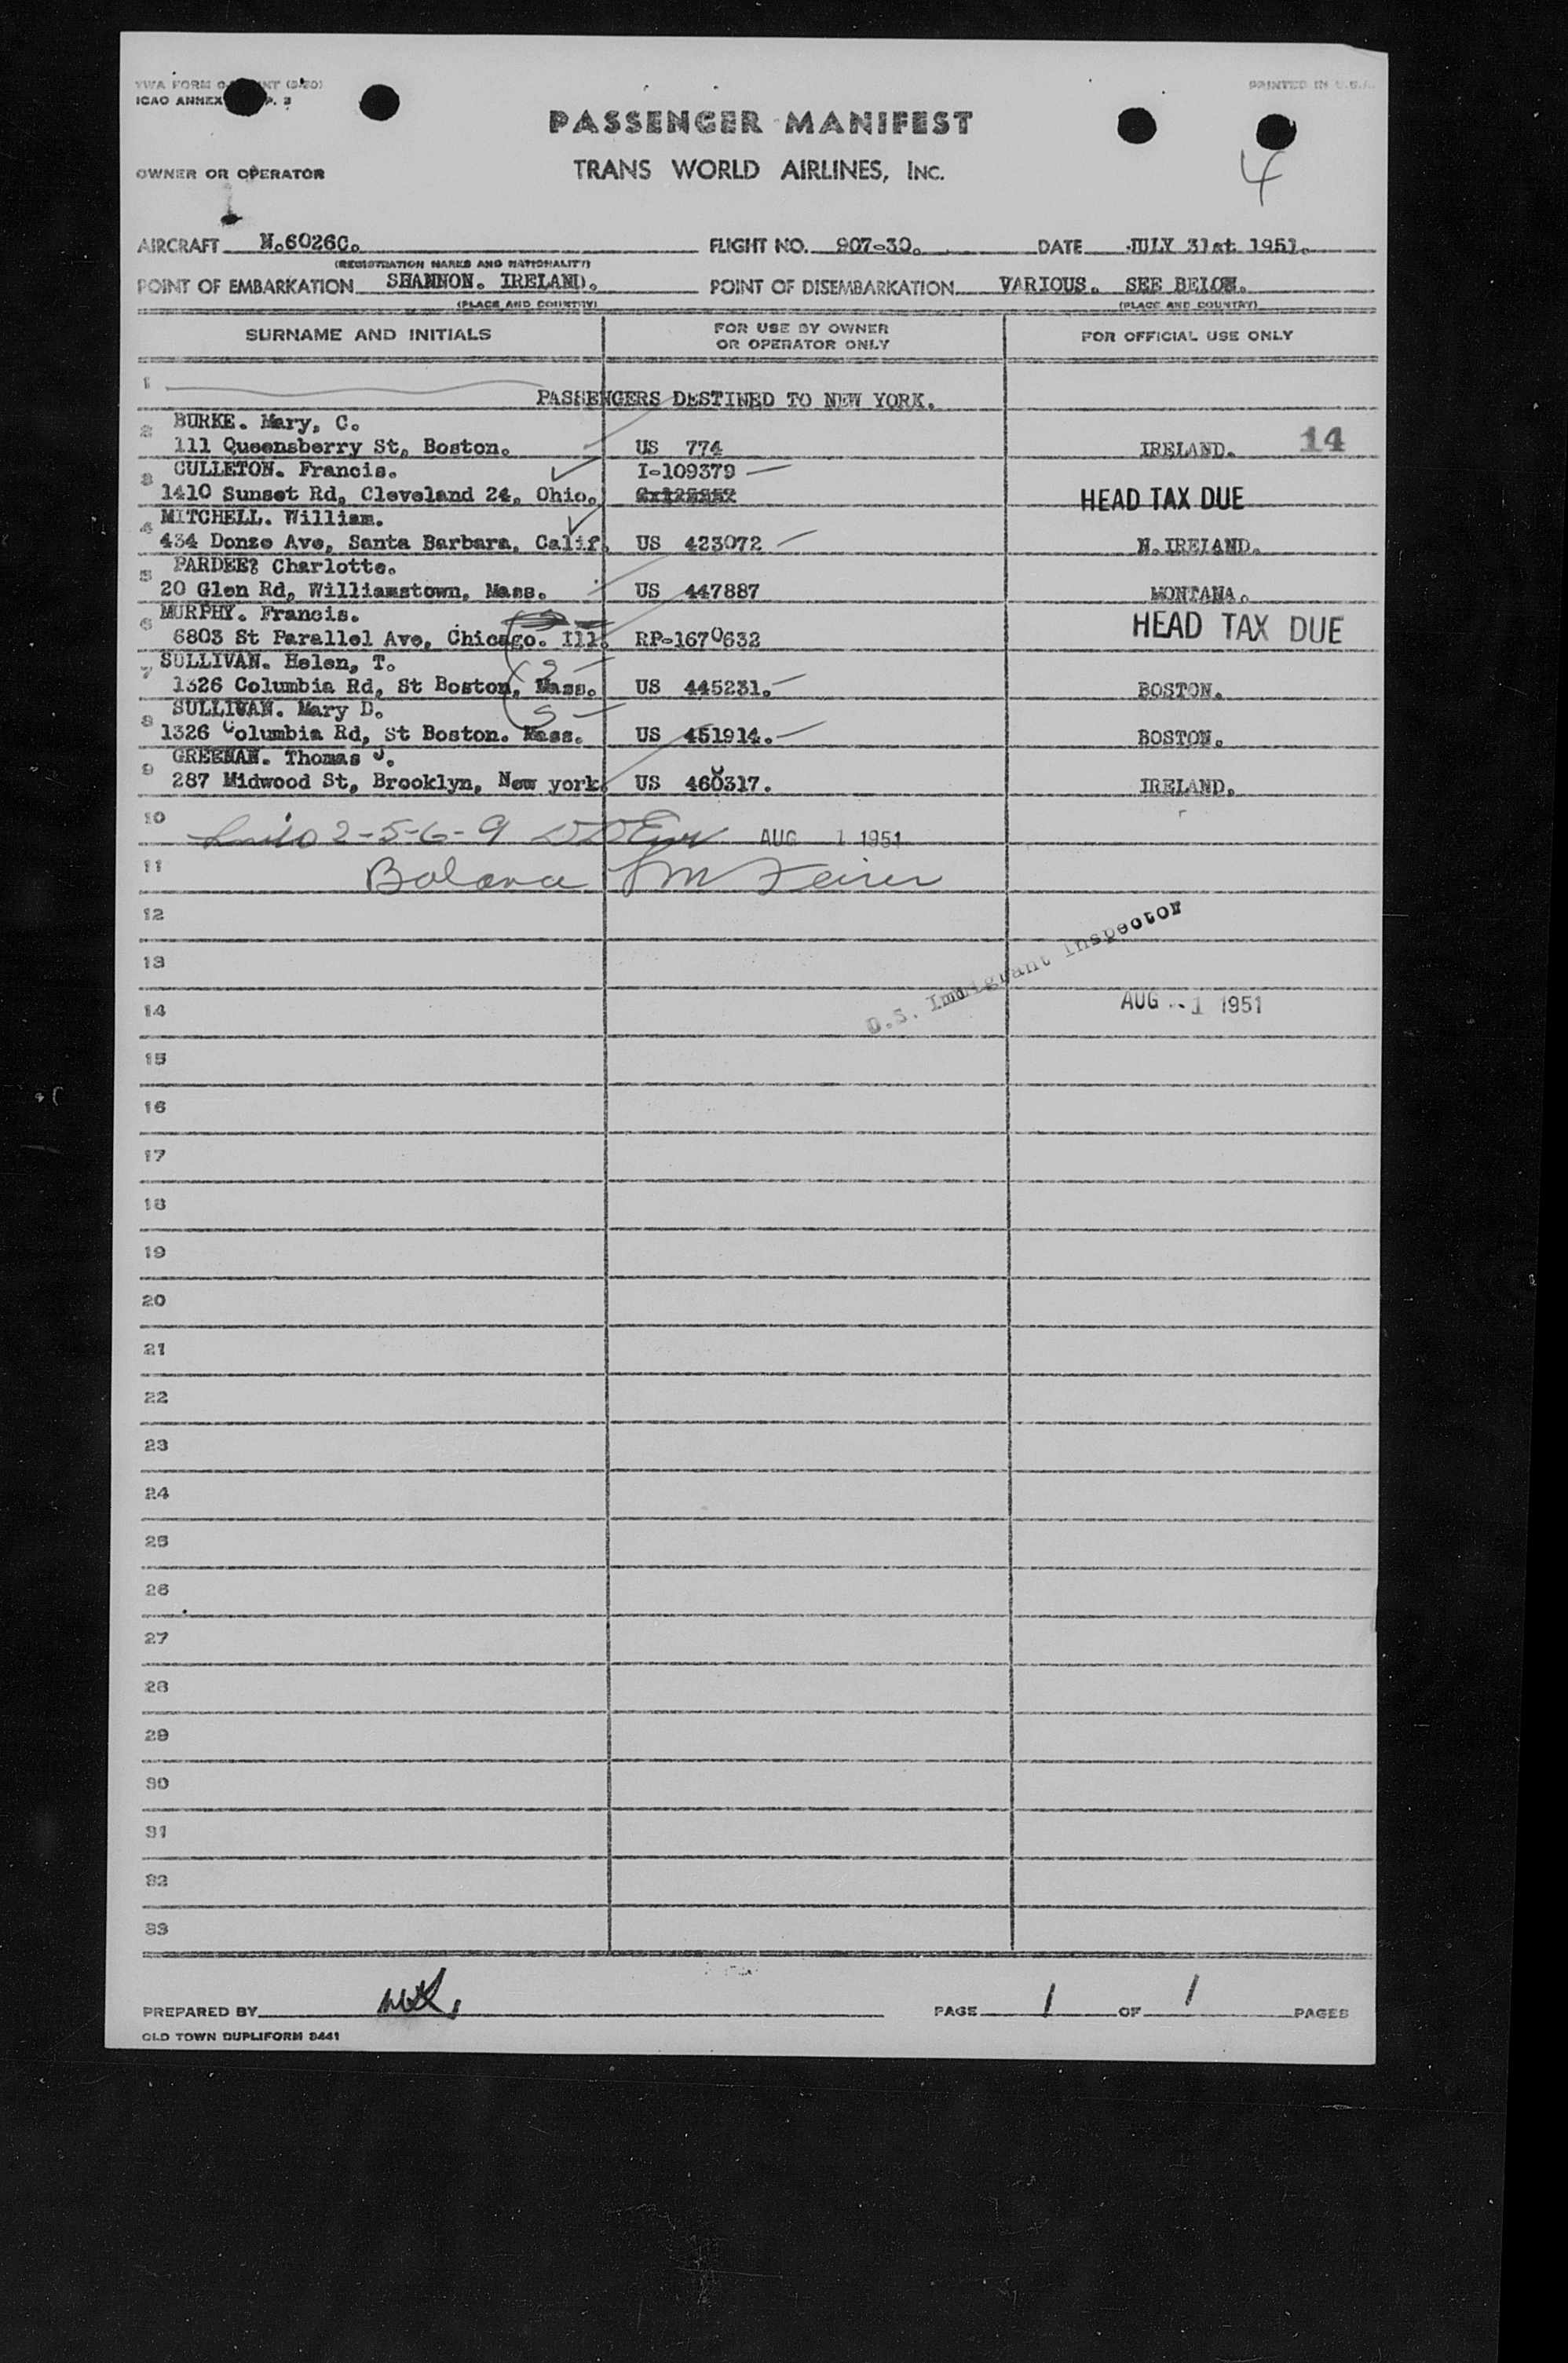 PRINTED IN U.S.A.
ICAO ANNEX P. 3
PASSENGER MANIFEST
4
OWNER OR OPERATOR
TRANS WORLD AIRLINES, INC.
AIRCRAFT N.6026C. FLIGHT NO. 907-30. DATE JULY 31st 1951.
(REGISTRATION MARKS AND NATIONALITY)
POINT OF EMBARKATION SHANNON. IRELAND. POINT OF DISEMBARKATION VARIOUS. SEE BELOW.
(PLACE AND COUNTRY) (PLACE AND COUNTRY)
SURNAME AND INITIALS FOR USE BY OWNER OR OPERATOR ONLY FOR OFFICIAL USE ONLY
1 PASSENGERS DESTINED TO NEW YORK.
2 BURKE. Mary, C.
111 Queensberry St, Boston. US 774 IRELAND. 14
3 CULLETON. Francis. I-109379
1410 Sunset Rd, Cleveland 24, Ohio. HEAD TAX DUE
4 MITCHELL. William.
434 Donze Ave, Santa Barbara, Calif. US 423072 N.IRELAND.
5 PARDEE? Charlotte.
20 Glen Rd, Williamstown, Mass. US 447887 MONTANA.
6 MURPHY. Francis.
6803 St Parallel Ave, Chicago. Ill. RP-1670632 HEAD TAX DUE
7 SULLIVAN. Helen, T.
1326 Columbia Rd, St Boston, Mass. US 445231. BOSTON.
8 SULLIVAN. Mary D.
1326 Columbia Rd, St Boston. Mass. US 451914. BOSTON.
9 GREENAN. Thomas J.
287 Midwood St, Brooklyn, New york. US 460317. IRELAND.
10 2-5-6-9 AUG 1 1951
11 Balance
12
U.S. Immigrant Inspector
13
14 AUG -1 1951
15
16
17
18
19
20
21
22
23
24
25
26
27
28
29
30
31
32
33
PREPARED BY MK. PAGE 1 OF 1 PAGES
OLD TOWN DUPLIFORM 8441